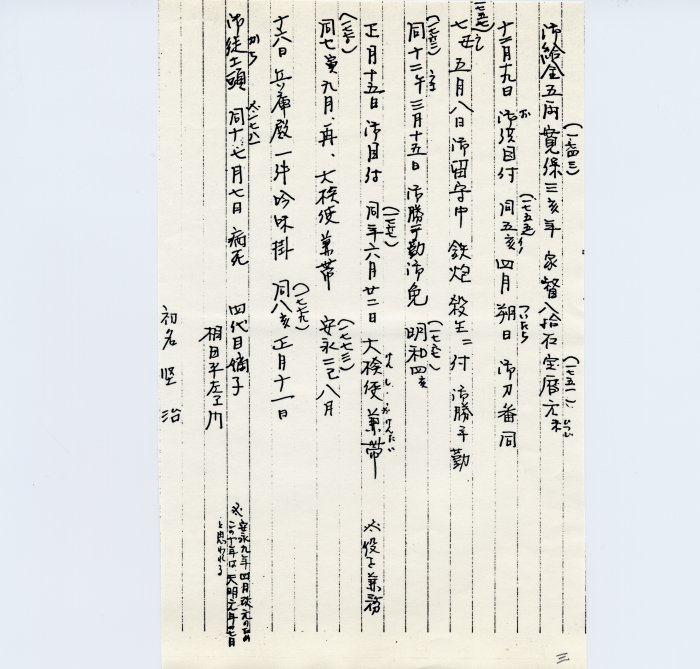 御給金五両 寛保三亥年 家督八拾石 宝暦元
(一七四三)
(一七五一)
十二月十九日 御後目付 同五亥 四月 朔日 御刀番 同
(一七五五)
ついたち
七丑 五月八日 御留守中 鉄炮 殺生ニ付 御勝手勤
(一七五七)
同十二午三月十五日 御勝手勤御免 明和四亥
正月十五日 御目付 同年六月廿二日 大検使 兼帯 ※役を兼務
同七寅九月、再、大検使 兼帯 安永二巳八月
(一七七〇)
(一七七三)
十六日 兵庫殿一件吟味掛 同八亥正月十一日
(一七七九)
御徒士頭 同十、七月七日 病死 四代目嫡子
かち
相田平左ヱ門
初名 堅治
※安永九年四月改元のため
この十年は天明元年七月
と思われる
三